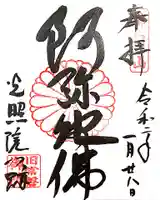 奉拝
令和二年
一月廿八日
阿弥陀佛
光照院門跡